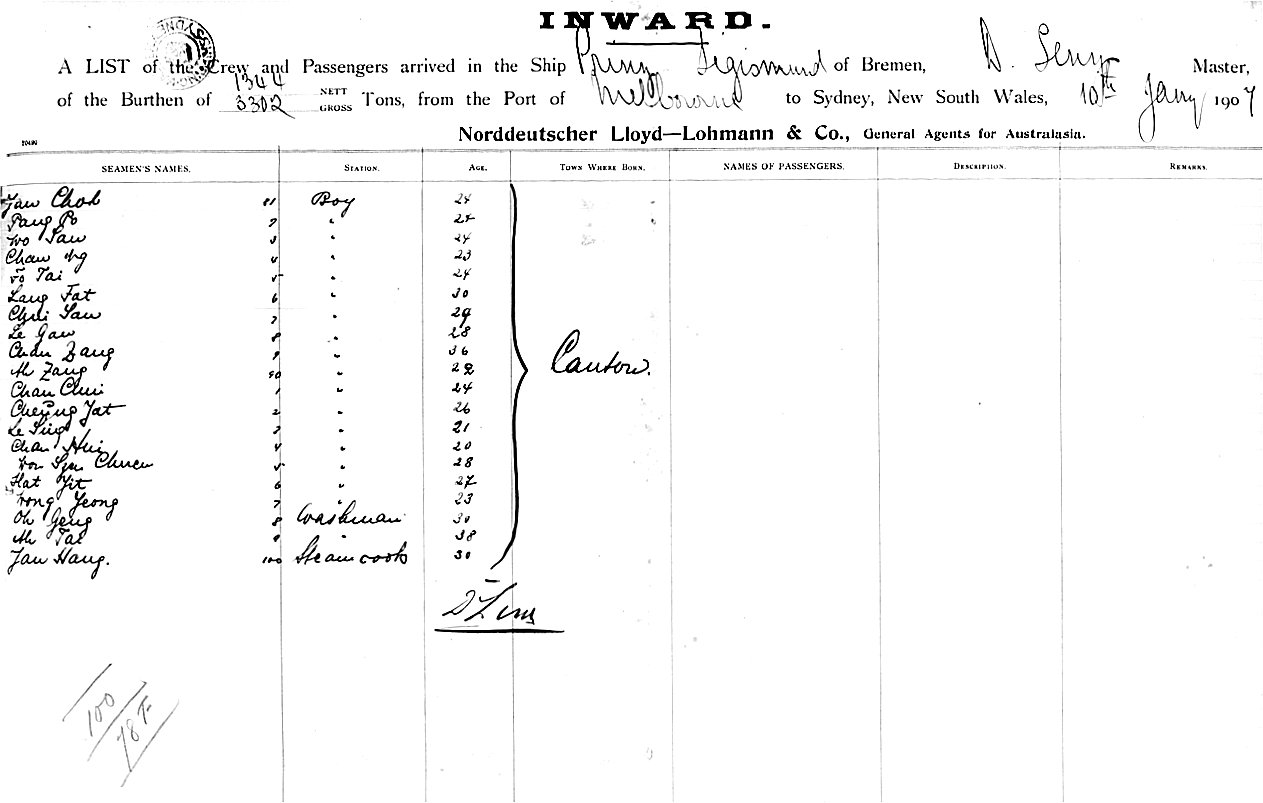 INWARD.
A LIST of the Crew and Passengers arrived in the Ship Prinz Sigismund of Bremen, D. Lenz Master,
of the Burthen of 1344 3302 NETT GROSS Tons, from the Port of Melbourne to Sydney, New South Wales, 10th Jany 1907
Norddeutscher Lloyd—Lohmann & Co., General Agents for Australasia.
SEAMEN'S NAMES. STATION. AGE. TOWN WHERE BORN. NAMES OF PASSENGERS. DESCRIPTION. REMARKS.
Chok 81 Boy 24
Pang Po 2 " 24
Wo San 3 " 24
Chan Ng 4 " 23
Fo Tai 5 " 24
Lang Fat 6 " 30
Chui San 7 " 29
Le Gan 8 " 28
Chan Bang 9 " 36
Ah Zang 90 " 22
Chan Chui 1 " 24
Cheung Yat 2 " 26
Le Sing 3 " 21
Chan Hui 4 " 20
Chuen 5 " 28
Hat Yit 6 " 27
Wong Yeong 7 " 23
Oh Geng 8 Washman 30
Ah Tai 9 " 38
Hang. 100 Steam cook 30
Canton.
D Lenz
100
78 F